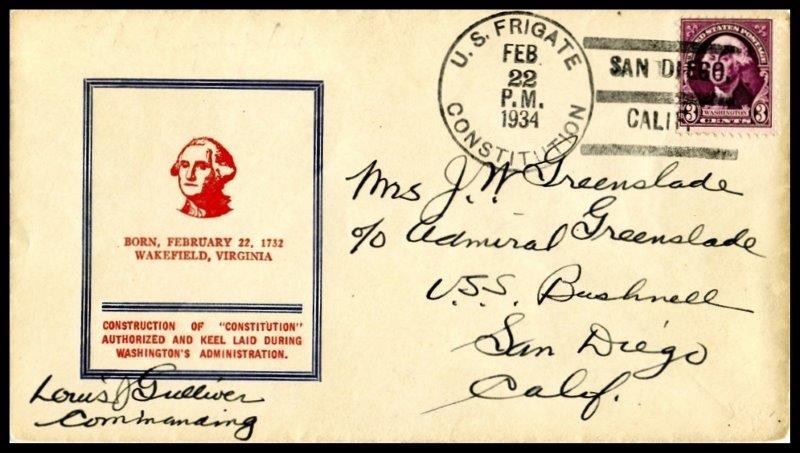 U.S. FRIGATE
FEB
22
P.M.
1934
CONSTITUTION
SAN DIEGO,
CALIF.
UNITED STATES POSTAGE
3 WASHINGTON 3
CENTS
BORN, FEBRUARY 22, 1732
WAKEFIELD, VIRGINIA
CONSTRUCTION OF "CONSTITUTION"
AUTHORIZED AND KEEL LAID DURING
WASHINGTON'S ADMINISTRATION.
Mrs J.W. Greenslade
c/o Admiral Greenslade
U.S.S. Bushnell
San Diego
Calif.
Louis J Gulliver
Commanding